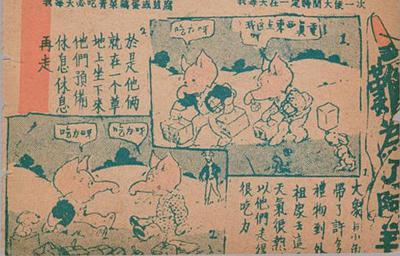 每天必吃青菜鷄蛋或豆腐
我每天在一定時間大便一次
難為了阿羊
1.
大象
帶了許多
禮物到外
祖家去這
天氣很熱
以他們走得
很吃力
吃力呀
東西真重
2.
於是他倆
就在一个草
地上坐下來
他們預備
休息休息
再走
吃力呀
吃力呀
2